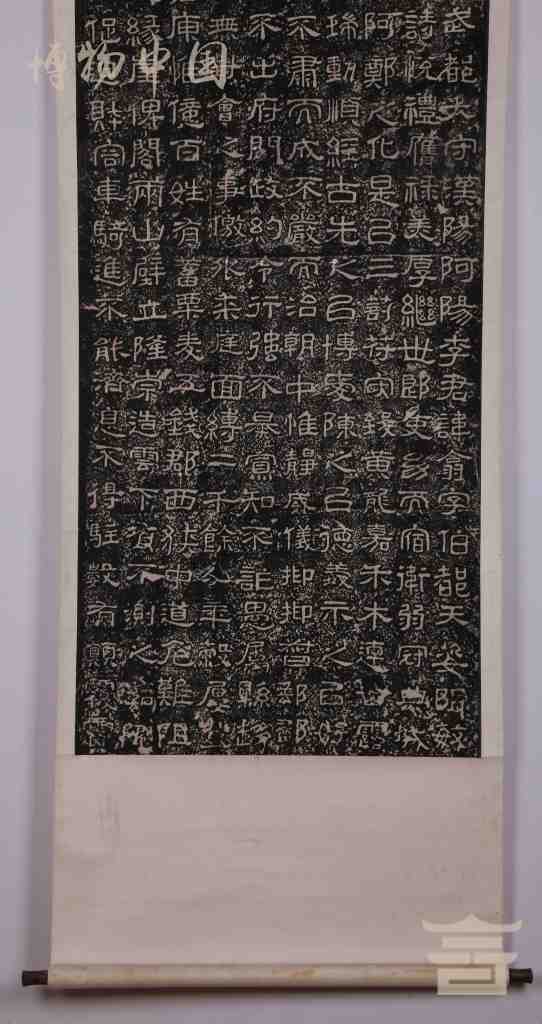 博物中国
武都太守漢陽阿陽李君諱翕字伯都天姿明敏
詩悅禮膺祿美厚繼世郎吏幼而宿衛弱冠典城
阿鄭之化是以三剖符守致黃龍嘉禾木連甘露
瑞動順經古先之以博愛陳之以德義示之以好
不肅而成不嚴而治朝中惟靜威儀抑抑督郵部
不出府門政約令行強不暴寡知不詐愚屬縣趨
無對會之事徼外來庭面縛二千餘人年穀屢登
庾惟億百姓有蓄粟麥五錢郡西狹中道危難阻
緣崖俾閣兩山壁立隆崇造雲下有不測之谿阨
促迫財容車騎進不能濟息不得駐數有顛覆霣